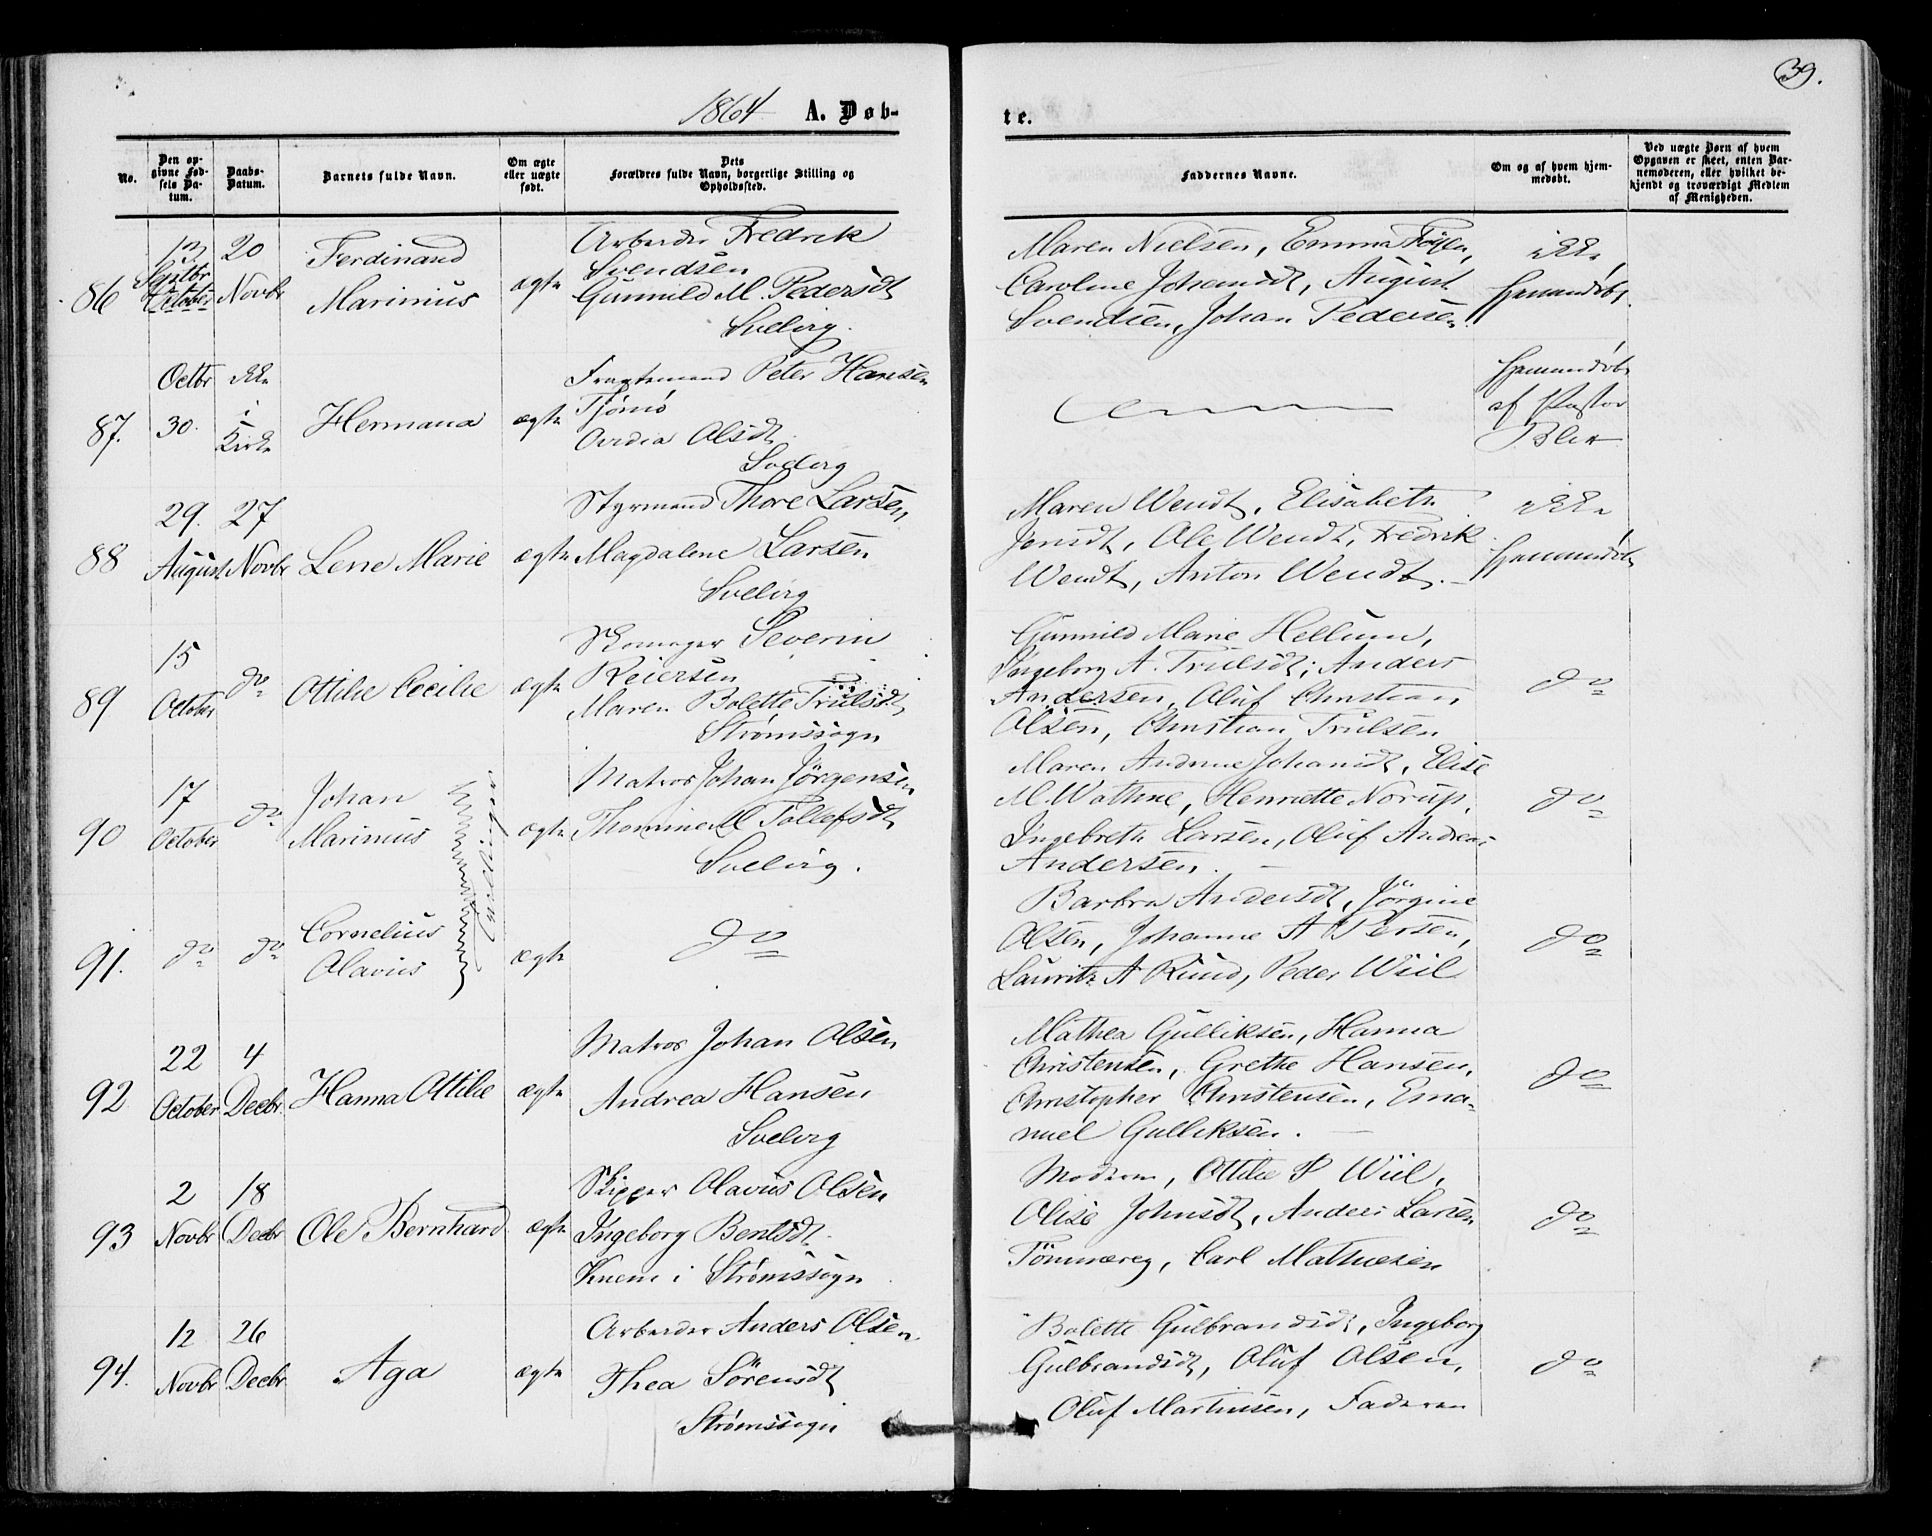 39.
1864 A. Døb-
te.
No.
Den op-
givne Fød-
sels Da-
tum.
Daabs-
Datum.
Barnets fulde Navn.
Om ægte
eller uægte
født.
Dets
Forældres fulde Navn, borgerlige Stilling og
Opholdssted.
Faddernes Navne.
Om og af hvem hjem-
medøbt.
Ved uægte Børn af hvem
Opgaven er skeet, enten Bar-
nemoderen, eller hvilket be-
kjendt og troværdigt Medlem
af Menigheden.
86
13
Septbr
October
20
Novbr
Ferdinand
Marinius
ægte
Arbeider Fredrik
Svendsen
Gunnild M. Pedersdt
Svelvig.
Maren Nielsen, Emma
Caroline Johansdt, August
Svendsen, Johan Pedersen.
ikke
hjemmedøbt.
87.
Octbr
30.
ikke
i
Kirke
Hermana
ægte
Fragtemand Peter Hansen
Tjømø
Ovidia Olsdt
Svelvig
hjemmedøbt
af Pastor
Blix
88
29.
August
27
Novbr
Lene Marie
ægte
Styrmand Thore Larsen
Magdalene Larsen
Svelvig
Maren Wendt, Elisabeth
Jonsdt, Ole Wendt, Fredrik
Wendt, Anton Wendt.
ikke
hjemmedøbt
89
15
October
do
Ottilie Cecilie
ægte
Skomager Severin
Reiersen
Maren Bolette Trulsdt
Strømssogn
Gunnild Marie Hellum,
Ingeborg A. Trulsdt, Anders
Andersen, Oluf Christian
Olsen, Christian Trulsen
do
90
17
October
do
Johan
Marinius
Tvillinger
ægte
Matros Johan Jörgensen
Thomine M Tollefsdt
Svelvig.
Maren Andrine Johansdt, Elise
M. Wathne, Henriette Norup,
Ingebreth Larsen, Oluf Andreas
Andersen.
do
91.
do
do
Cornelius
Olavius
ægte
do
Barbra Andersdt, Jörgine
Olsen, Johanne A Persen,
Lauritz A Rund, Peder Wiil
do
92
22
October
4
Decbr
Hanna Ottilie
ægte
Matros Johan Olsen
Andrea Hansen
Svelvig
Mathea Gulliksen, Hanna
Christensen, Grethe Hansen,
Christopher Christensen, Ema-
nuel Gulliksen.
do
93
2
Novbr
18
Decbr
Ole Bernhard
ægte
Skipper Olavus Olsen
Ingeborg Bentsdt.
Knem i Strømssogn
Moderen, Ottilie P Wiil,
Olise Johnsdt, Anders Larsen
Tömmereg, Carl Mathiesen
do
94.
12
Novbr
26
Decbr
Aga
ægte
Arbeider Anders Olsen
Thea Sörensdt
Strømssogn
Bolette Gulbrandsdt, Ingeborg
Gulbrandsdt, Oluf Olsen,
Oluf Martinsen, Faderen
do